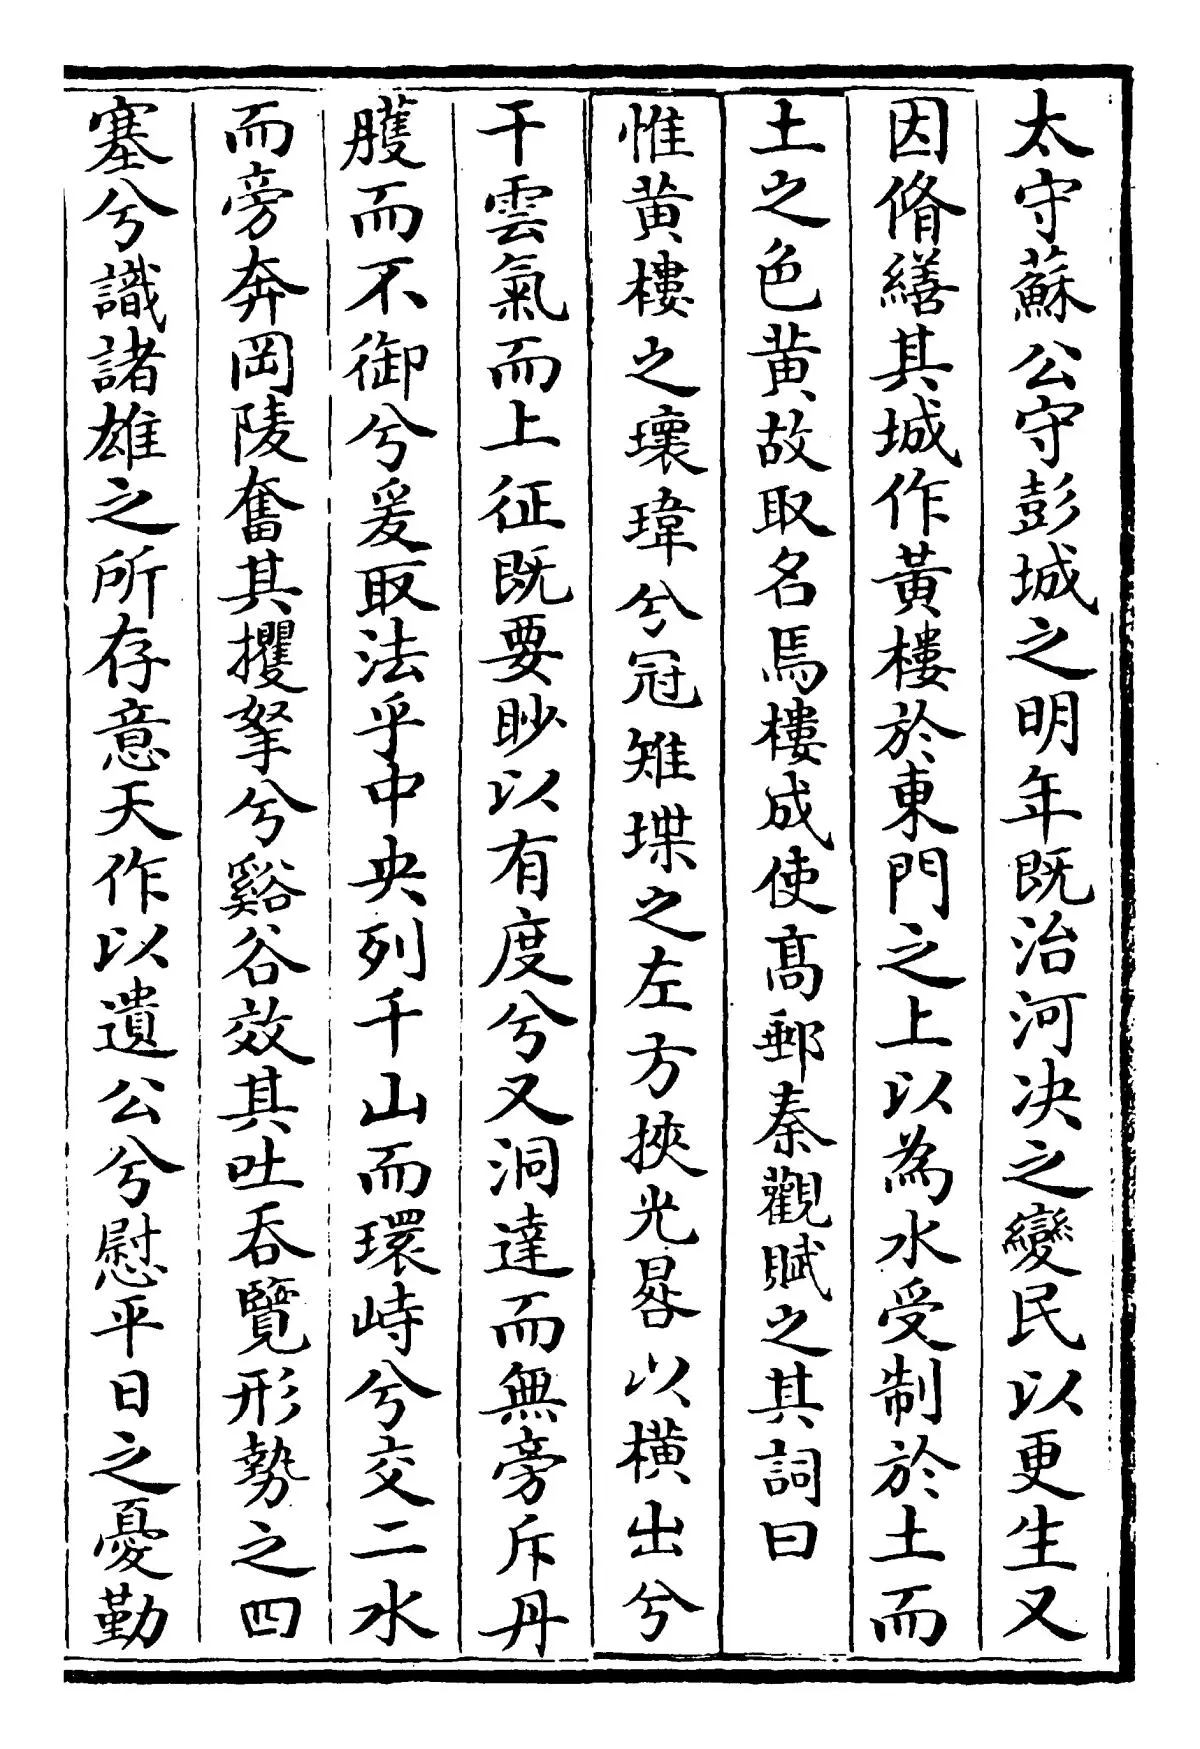 太守蘇公守彭城之明年既治河决之變民以更生又
因脩繕其城作黃樓於東門之上以為水受制於土而
土之色黄故取名焉樓成使髙郵秦觀賦之其詞曰
惟黄樓之瓌瑋兮冠雉堞之左方挾光晷以横出兮
干雲氣而上征既要眇以有度兮又洞達而無旁斥丹
雘而不御兮爰取法乎中央列千山而環峙兮交二水
而旁奔岡陵奮其攫拏兮谿谷效其吐吞覽形勢之四
塞兮識諸雄之所存意天作以遺公兮慰平日之憂勤